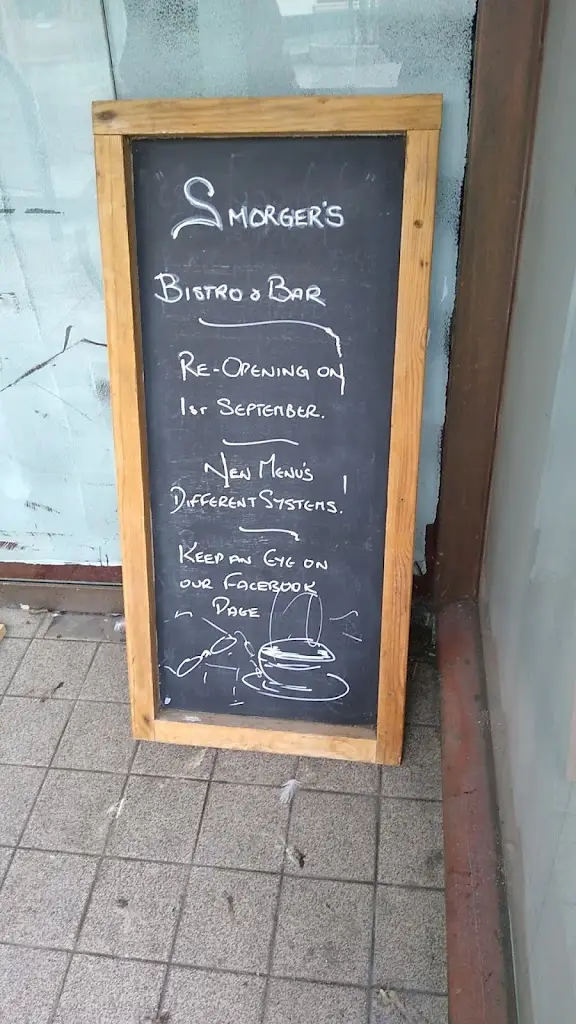 SMORGER'S
BISTRO & BAR
RE-OPENING ON
1ST SEPTEMBER.
NEW MENU'S
DIFFERENT SYSTEMS!
KEEP AN EYE ON
OUR FACEBOOK
PAGE